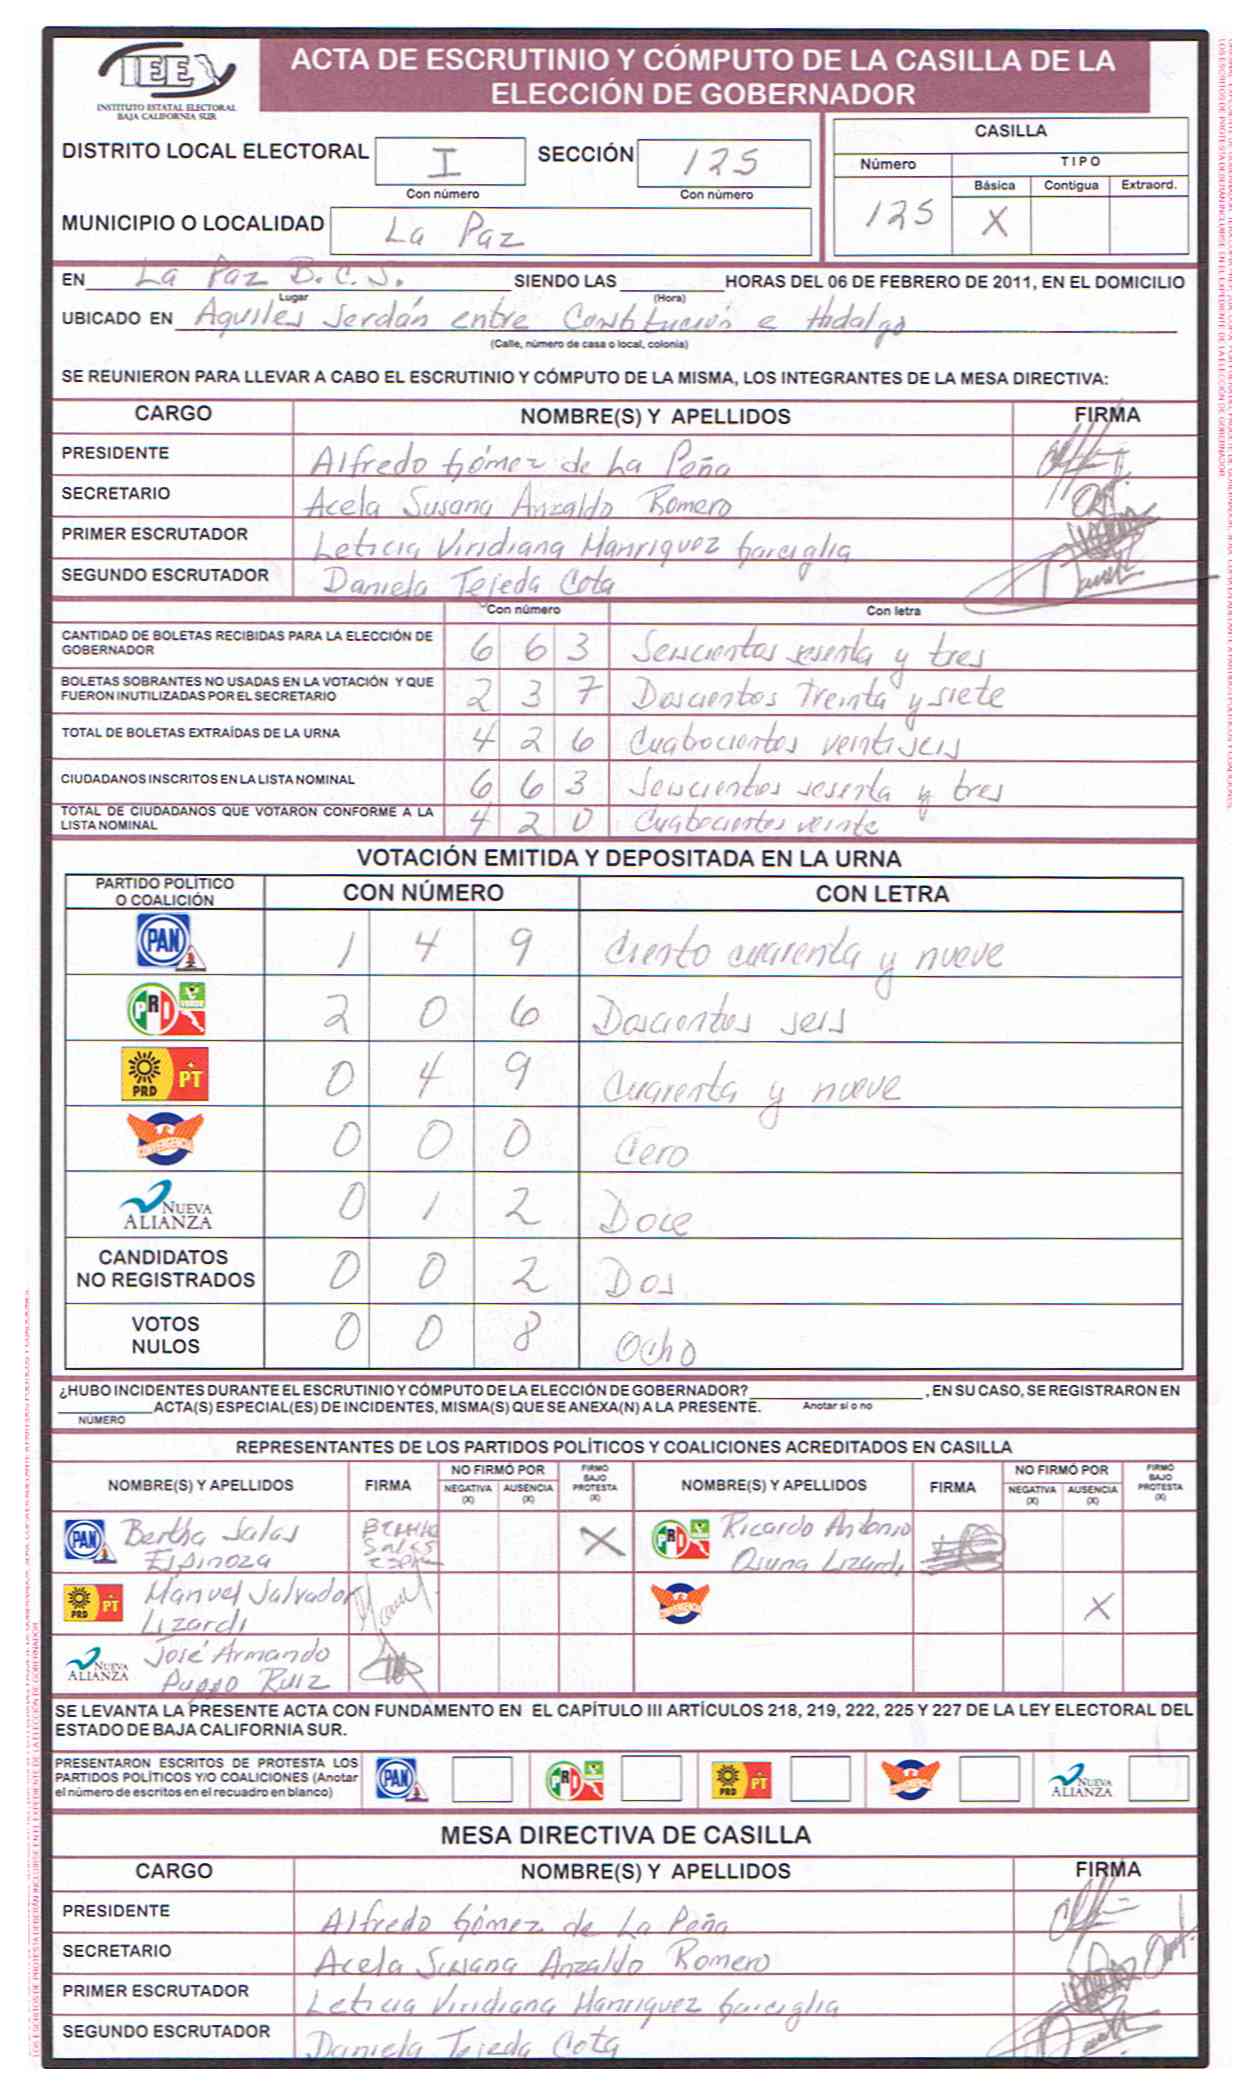 IEE
INSTITUTO ESTATAL ELECTORAL
BAJA CALIFORNIA SUR
ACTA DE ESCRUTINIO Y CÓMPUTO DE LA CASILLA DE LA
ELECCIÓN DE GOBERNADOR
DISTRITO LOCAL ELECTORAL I SECCIÓN 125
Con número Con número
MUNICIPIO O LOCALIDAD La Paz
CASILLA
Número TIPO
Básica Contigua Extraord.
125 X
EN La Paz B.C.S. SIENDO LAS HORAS DEL 06 DE FEBRERO DE 2011, EN EL DOMICILIO
Lugar (Hora)
UBICADO EN Aquiles Serdán entre Constitución e Hidalgo
(Calle, número de casa o local, colonia)
SE REUNIERON PARA LLEVAR A CABO EL ESCRUTINIO Y CÓMPUTO DE LA MISMA, LOS INTEGRANTES DE LA MESA DIRECTIVA:
CARGO NOMBRE(S) Y APELLIDOS FIRMA
PRESIDENTE Alfredo Gómez de La Peña
SECRETARIO Acela Susana Anzaldo Romero
PRIMER ESCRUTADOR Leticia Viridiana Manriquez Garciglia
SEGUNDO ESCRUTADOR Daniela Tejeda Cota
Con número Con letra
CANTIDAD DE BOLETAS RECIBIDAS PARA LA ELECCIÓN DE
GOBERNADOR 6 6 3 Seiscientos sesenta y tres
BOLETAS SOBRANTES NO USADAS EN LA VOTACIÓN Y QUE
FUERON INUTILIZADAS POR EL SECRETARIO 2 3 7 Doscientos Treinta y siete
TOTAL DE BOLETAS EXTRAÍDAS DE LA URNA 4 2 6 Cuatrocientos veintiseis
CIUDADANOS INSCRITOS EN LA LISTA NOMINAL 6 6 3 Seiscientos sesenta y tres
TOTAL DE CIUDADANOS QUE VOTARON CONFORME A LA
LISTA NOMINAL 4 2 0 Cuatrocientos veinte
VOTACIÓN EMITIDA Y DEPOSITADA EN LA URNA
PARTIDO POLÍTICO
O COALICIÓN CON NÚMERO CON LETRA
PAN 1 4 9 Ciento cuarenta y nueve
PRI VERDE 2 0 6 Doscientos seis
PRD PT 0 4 9 Cuarenta y nueve
CONVERGENCIA 0 0 0 Cero
NUEVA
ALIANZA 0 1 2 Doce
CANDIDATOS
NO REGISTRADOS 0 0 2 Dos
VOTOS
NULOS 0 0 8 Ocho
¿HUBO INCIDENTES DURANTE EL ESCRUTINIO Y CÓMPUTO DE LA ELECCIÓN DE GOBERNADOR? , EN SU CASO, SE REGISTRARON EN
ACTA(S) ESPECIAL(ES) DE INCIDENTES, MISMA(S) QUE SE ANEXA(N) A LA PRESENTE. Anotar si o no
NÚMERO
REPRESENTANTES DE LOS PARTIDOS POLÍTICOS Y COALICIONES ACREDITADOS EN CASILLA
NOMBRE(S) Y APELLIDOS FIRMA NO FIRMÓ POR NEGATIVA (X) AUSENCIA (X) FIRMÓ BAJO PROTESTA (X) NOMBRE(S) Y APELLIDOS FIRMA NO FIRMÓ POR NEGATIVA (X) AUSENCIA (X) FIRMÓ BAJO PROTESTA (X)
PAN Bertha Salas Espinoza X PRI Ricardo Antonio Osuna Lizardi
PRD PT Manuel Salvador Lizardi CONVERGENCIA X
NUEVA ALIANZA José Armando Ruiz
SE LEVANTA LA PRESENTE ACTA CON FUNDAMENTO EN EL CAPÍTULO III ARTÍCULOS 218, 219, 222, 225 Y 227 DE LA LEY ELECTORAL DEL
ESTADO DE BAJA CALIFORNIA SUR.
PRESENTARON ESCRITOS DE PROTESTA LOS
PARTIDOS POLÍTICOS Y/O COALICIONES (Anotar
el número de escritos en el recuadro en blanco) PAN PRI PRD PT CONVERGENCIA NUEVA ALIANZA
MESA DIRECTIVA DE CASILLA
CARGO NOMBRE(S) Y APELLIDOS FIRMA
PRESIDENTE Alfredo Gómez de La Peña
SECRETARIO Acela Susana Anzaldo Romero
PRIMER ESCRUTADOR Leticia Viridiana Manriquez Garciglia
SEGUNDO ESCRUTADOR Daniela Tejeda Cota